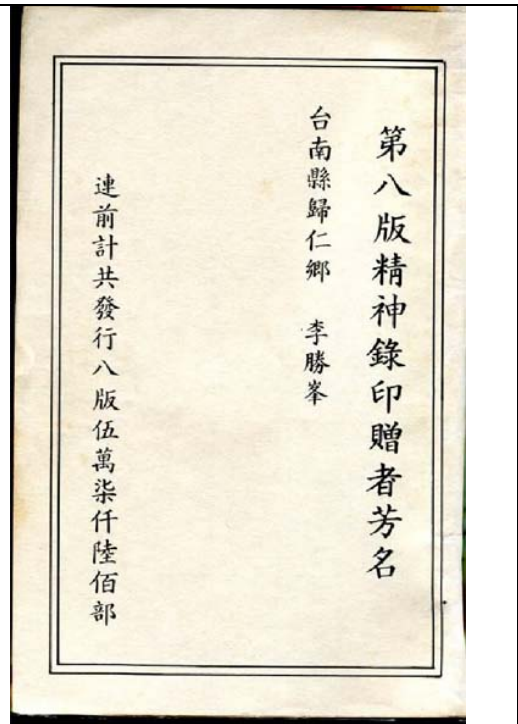 第八版精神錄印贈者芳名
台南縣歸仁鄉　李勝峯
連前計共發行八版伍萬柒仟陸佰部